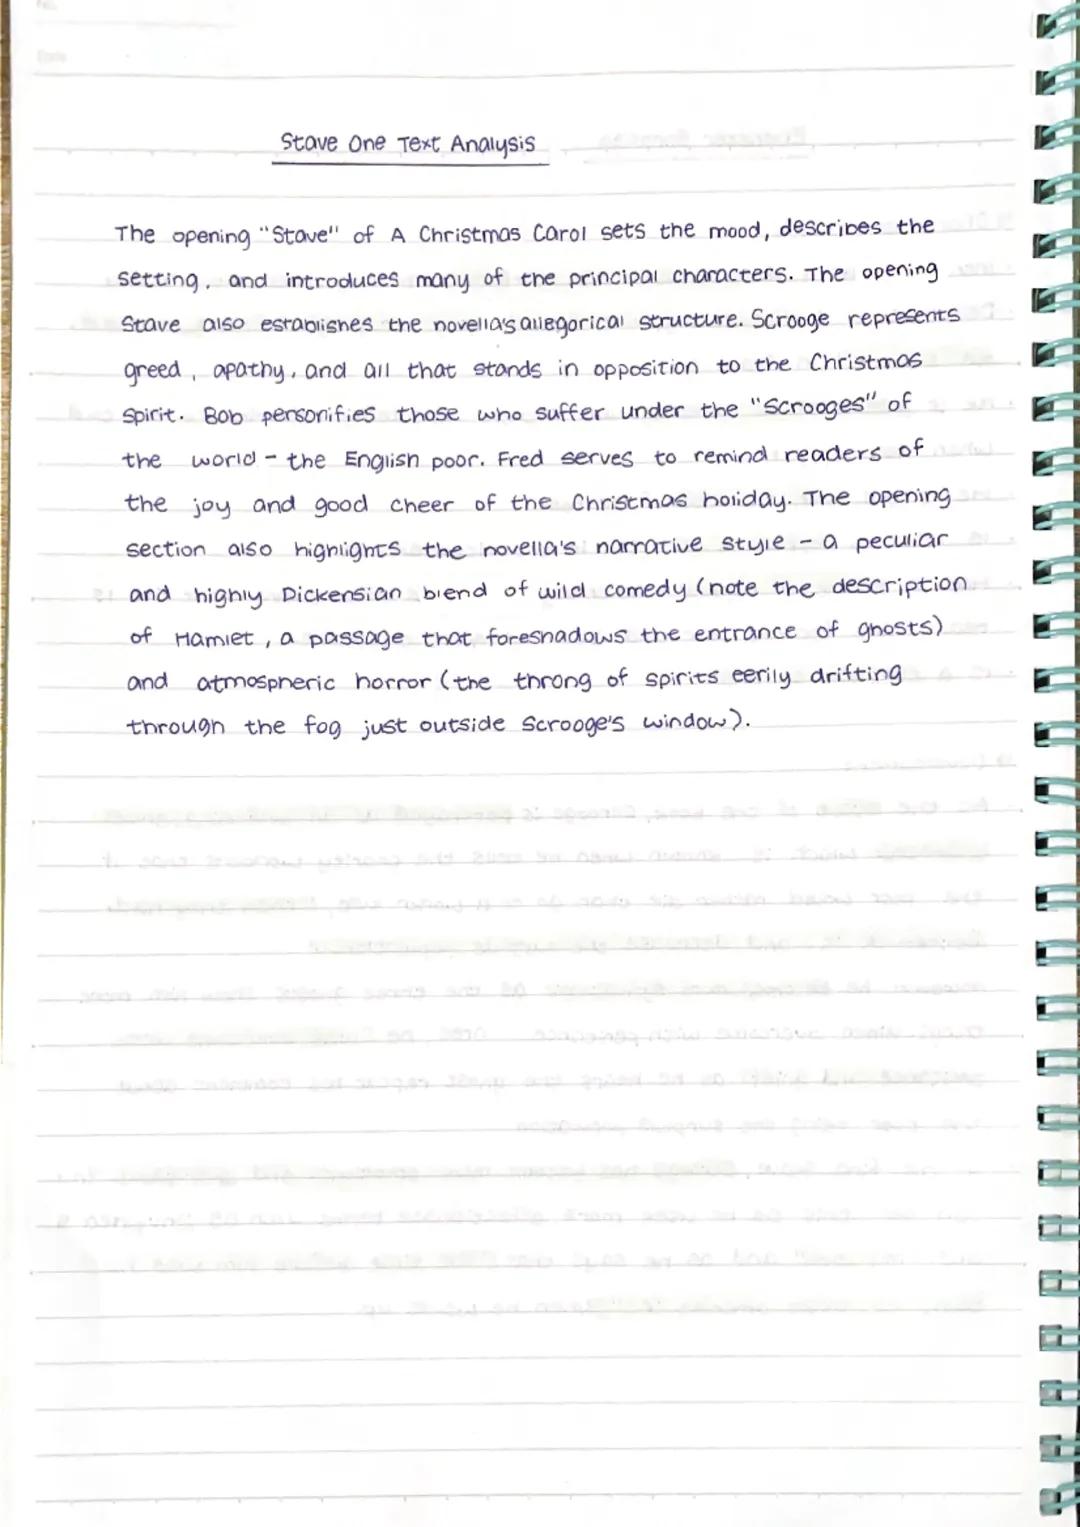 Stave One Text Analysis
The opening "Stave" of A Christmas Carol sets the mood, describes the
setting, and introduces many of the principal characters. The opening
Stave also establishes the novella's allegorical structure. Scrooge represents
greed, apathy, and all that stands in opposition to the Christmas
Spirit. Bob personifies those who suffer under the "Scrooges" of
the world - the English poor. Fred serves to remind readers of
the joy and good cheer of the Christmas holiday. The opening
section also highlights the novella's narrative style - a peculiar
and highly Dickensian blend of wild comedy (note the description
of Hamlet, a passage that foreshadows the entrance of ghosts)
and atmospheric horror (the throng of spirits eerily drifting
through the fog just outside Scrooge's window).